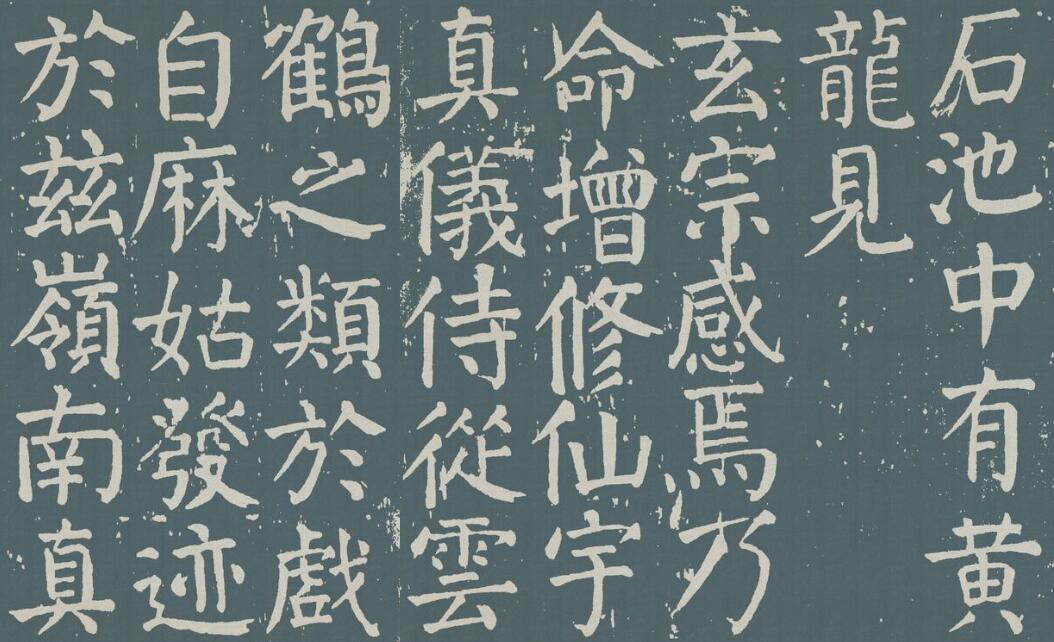 石池中有黄
龍見
玄宗感焉乃
命增修仙宇
真儀侍從雲
鶴之類於戲
自麻姑發迹
於茲嶺南真